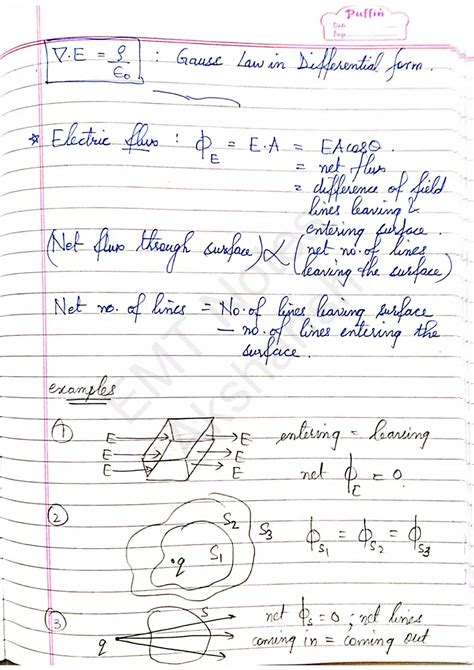 Puffin
Date
Page
∇·E = ρ/ε₀ : Gauss Law in Differential form.
* Electric flux : ϕ_E = E·A = EAcosθ.
= net flux
= difference of field
lines leaving &
entering surface.
(Net flux through surface) ∝ (net no. of lines
leaving the surface)
Net no. of lines = No. of lines leaving surface
— no. of lines entering the
surface.
examples
① E E entering = leaving
E E
E E net ϕ_E = 0.
② S₂ S₃ ϕ_S₁ = ϕ_S₂ = ϕ_S₃
·q S₁
③ S net ϕ_S = 0 ; net lines
q coming in = coming out
EMT Notes